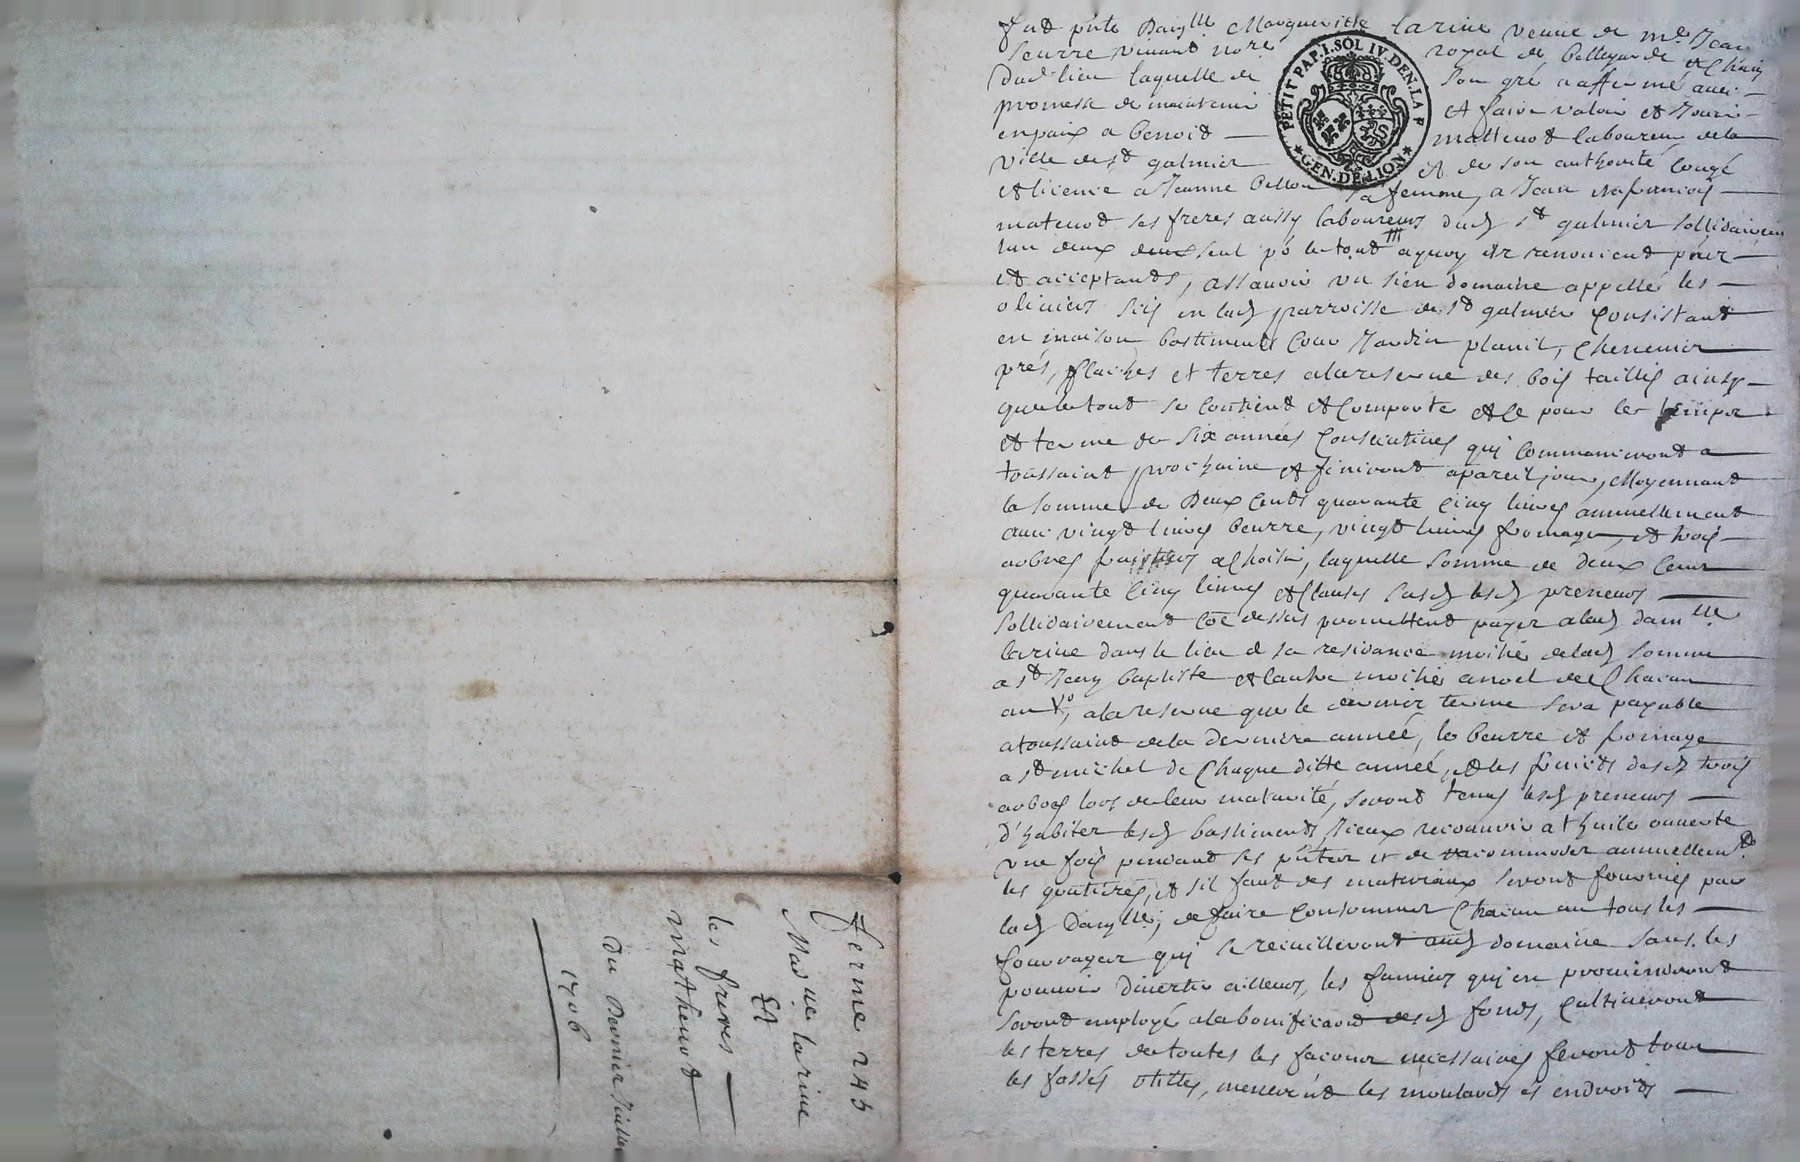 fut pnte Damlle Margueritte larine veuve de me Jean
Seurre vivant nore royal de bellegarde &
dud lieu laquelle de son gré a affermé avec
promesse de maintenir et faire valoir et Jouir
en paix a benoist mattenod laboureur de la
ville de st galmier et de son authorité congé
et licence a Jeanne sa femme, a Jean
matenod ses freres aussy laboureurs dud st galmier sollidairem
lun deux seul po le tout aquoy ils renoncent
et acceptants, assavoir un sien domaine appellé les
oliniers sis en lad parroisse de st galmier consistant
en maison bastiments cour Jardin planil, chenevier
prés, et terres a la reserve des bois taillis ainsy
que le tout se contient et comporte et ce pour le temps
et terme de six années consecutives qui commanceront a
toussaint prochaine et finiront a pareil jour, Moyennant
la somme de Deux Cents quarante cinq livres annuellement
avec vingt livres beurre, vingt livres fromage, et trois
arbres fruittiers a choisir, laquelle somme de deux cens
quarante cinq livres et lesd preneurs
sollidairement coe dessus promettent payer a lad damlle
larine dans le lieu de sa residance moitié de lad somme
a st Jean baptiste et lautre moitié a noel de chacun
an, a la reserve que le dernier terme sera payable
a toussaint de la derniere année, le beurre et fromage
a st michel de chaque ditte année, et les fruicts desd trois
arbres lors de leur maturité, seront tenus lesd preneurs
d'habiter lesd bastiments Jceux recouvrir a thuile ouverte
une fois pendant les et de racommoder annuellemt
les goutieres, et sil faut des materiaux seront fournis par
lad Damlle, de faire consommer chacun an tous les
fourrages qui se recuilleront aud domaine sans les
pouvoir divertir ailleurs, les fumiers quj en proviendront
seront employé a la bonificaon desd fonds, Cultiveront
les terres de toutes les facons necessaires feront tous
les fossés utilles, les moutards es endroits
PETIT PAP. I. SOL IV. DEN. LA F
GEN. DE LION
ferme 245
Marie larine
Et
les freres
mathenod
du Dernier Juillet
1706